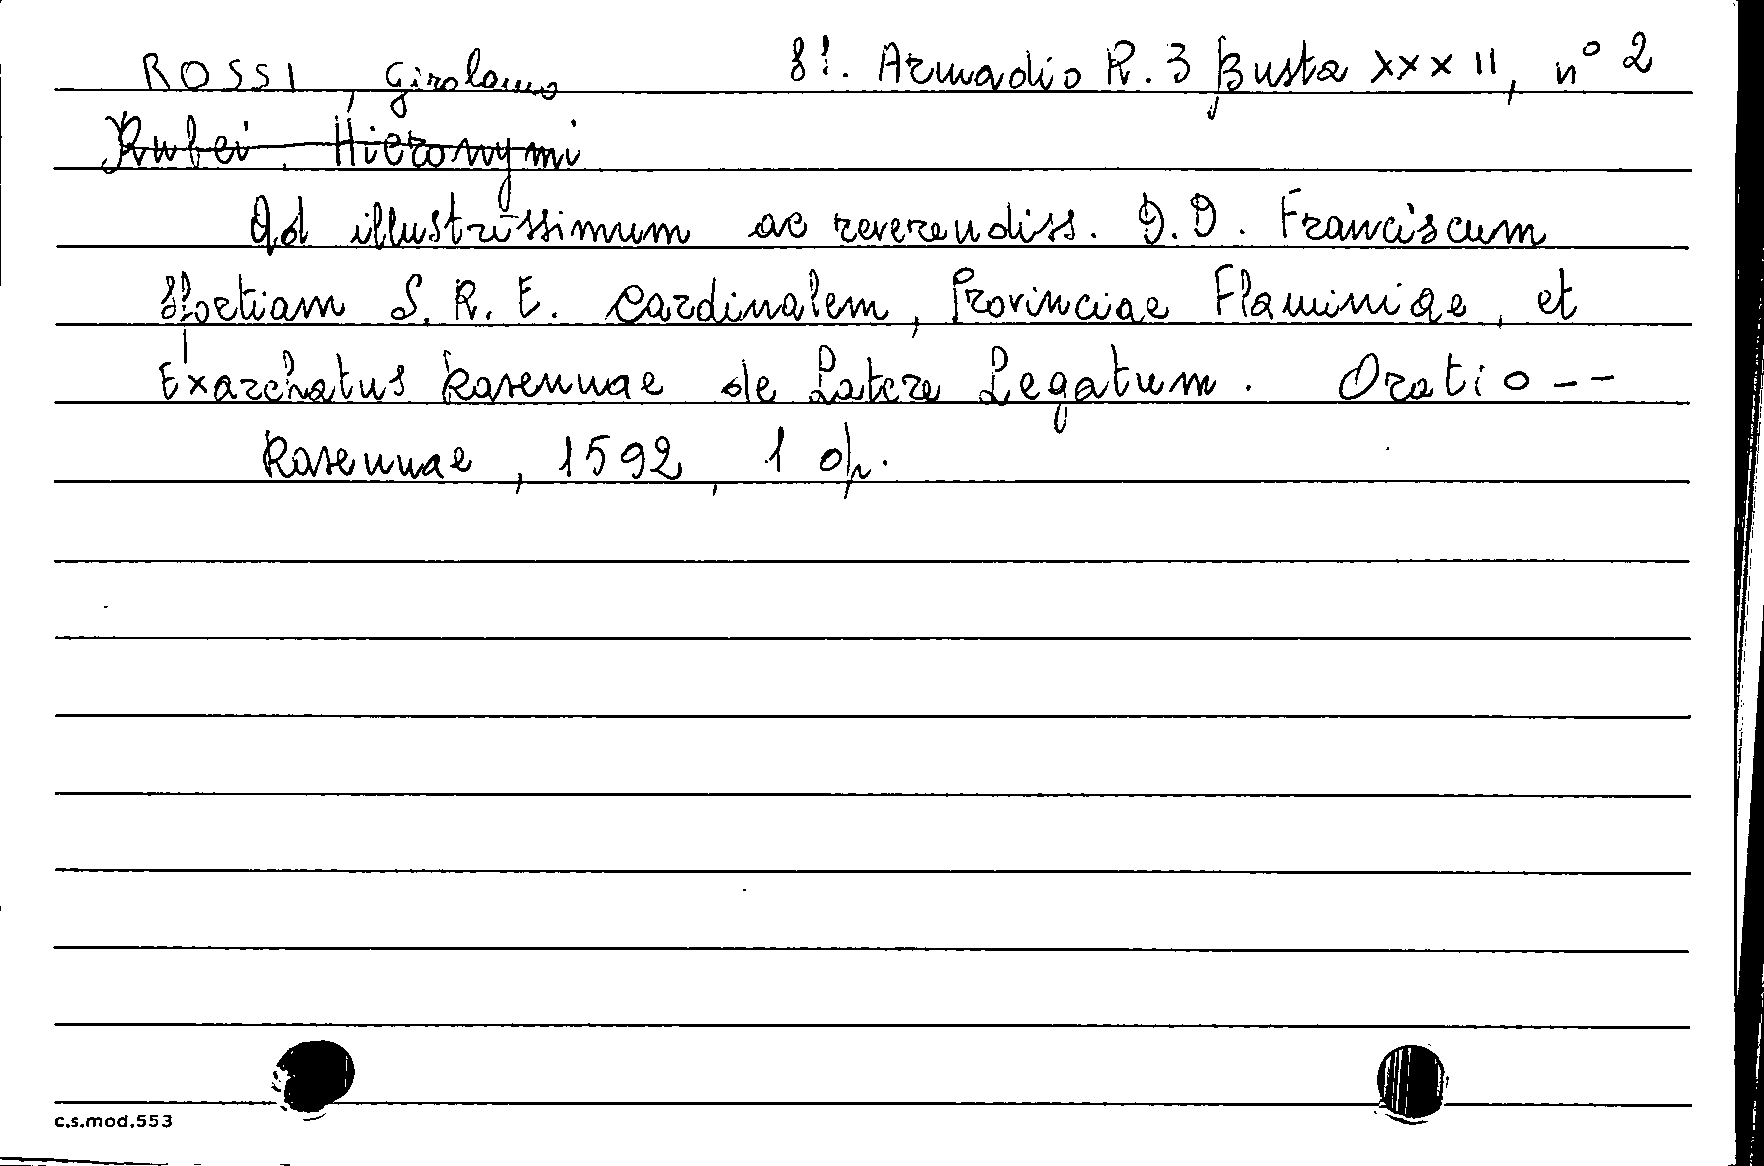 ROSSI, Girolamo S!. Armadio R. 3 Busta XXXII, n° 2
Rubei, Hieronymi
Ad illustrissimum ac reverendiss. D.D. Franciscum
Sfortiam S. R. E. Cardinalem, Provinciae Flaminiae, et
Exarchatus Ravennae de Latere Legatum. Oratio --
Ravennae, 1592, 1 op.
c.s.mod.553